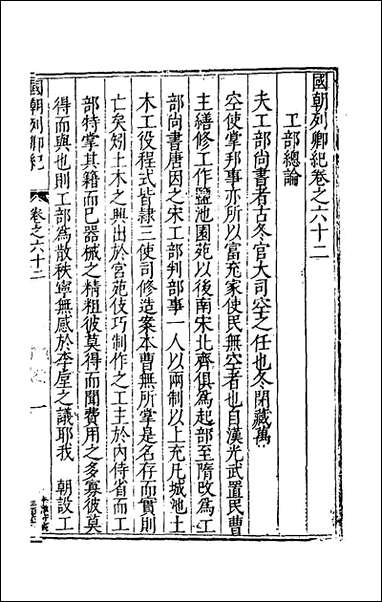 國朝列卿紀卷之六十二
工部總論
夫工部尚書者古冬官大司空之任也冬閉藏萬
空使掌邦事亦所以富充家使民無空者也自漢光武置民曹
主繕修工作鹽池園苑以後南宋北齊俱爲起部至隋改爲工
部尚書唐因之宋工部判部事一人以兩制以上充凡城池土
木工役程式皆隷三使司修造案本曹無所掌是名存而實則
亡矣矧土木之興出於宮苑伎巧制作之工主於內侍省而工
部特掌其籍而已器械之精粗彼莫得而聞費用之多寡彼莫
得而與也則工部為散秩寧無感於李垕之議耶我 朝設工
國朝列卿紀 卷之六十二 一